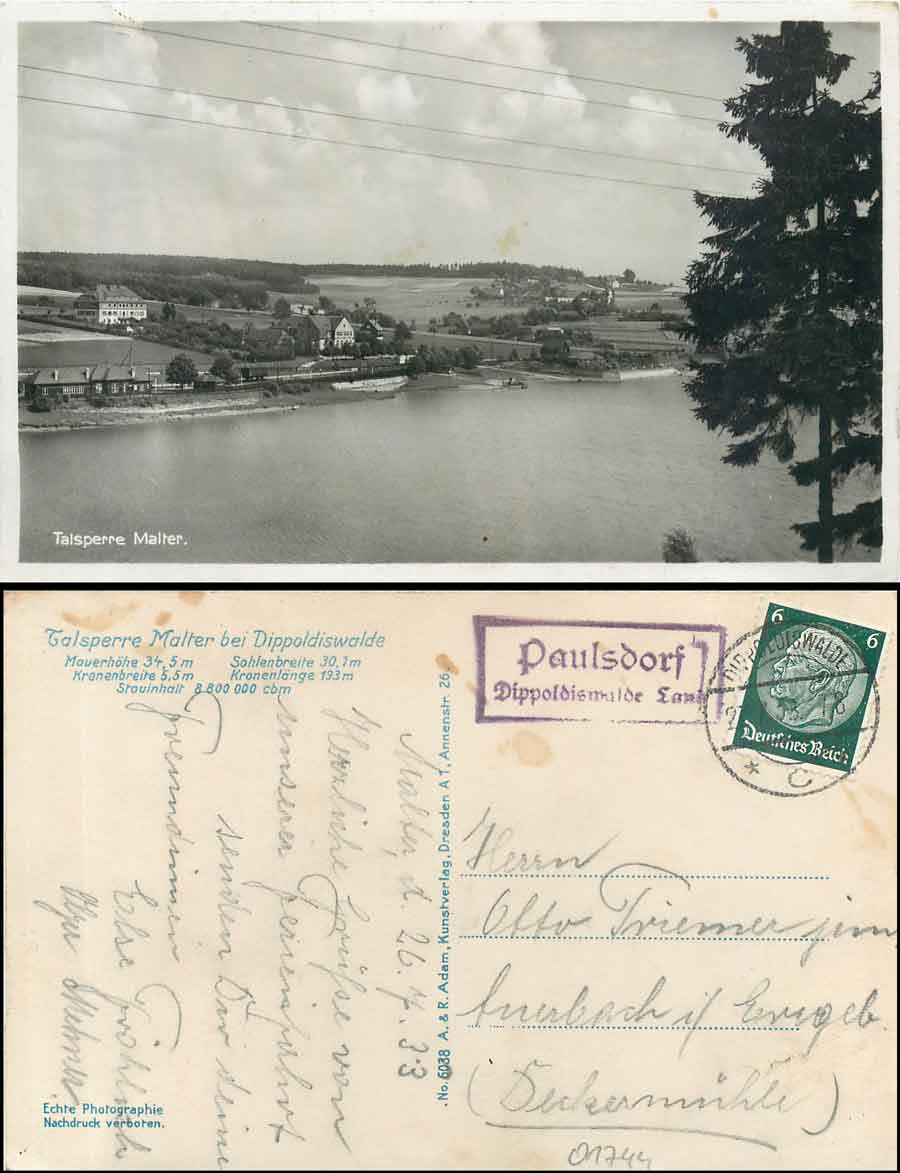 Talsperre Malter.
Talsperre Malter bei Dippoldiswalde
Mauerhöhe 34,5 m Sohlenbreite 30,1 m
Kronenbreite 5,5 m Kronenlänge 193 m
Stauinhalt 8 800 000 cbm
Malter, d. 26.7.33
Herzliche Grüße von
unserer Ferienfahrt
senden Dir deine
Freundinnen
Else
Echte Photographie
Nachdruck verboten.
No. 6038 A. & R. Adam, Kunstverlag, Dresden A 1, Annenstr. 26
Paulsdorf
Dippoldiswalde Land
DIPPOLDISWALDE
C
6 6
Deutsches Reich
Herrn
Otto Triemer jun
Auerbach i/ Erzgeb.
(Beckermühle)
01744